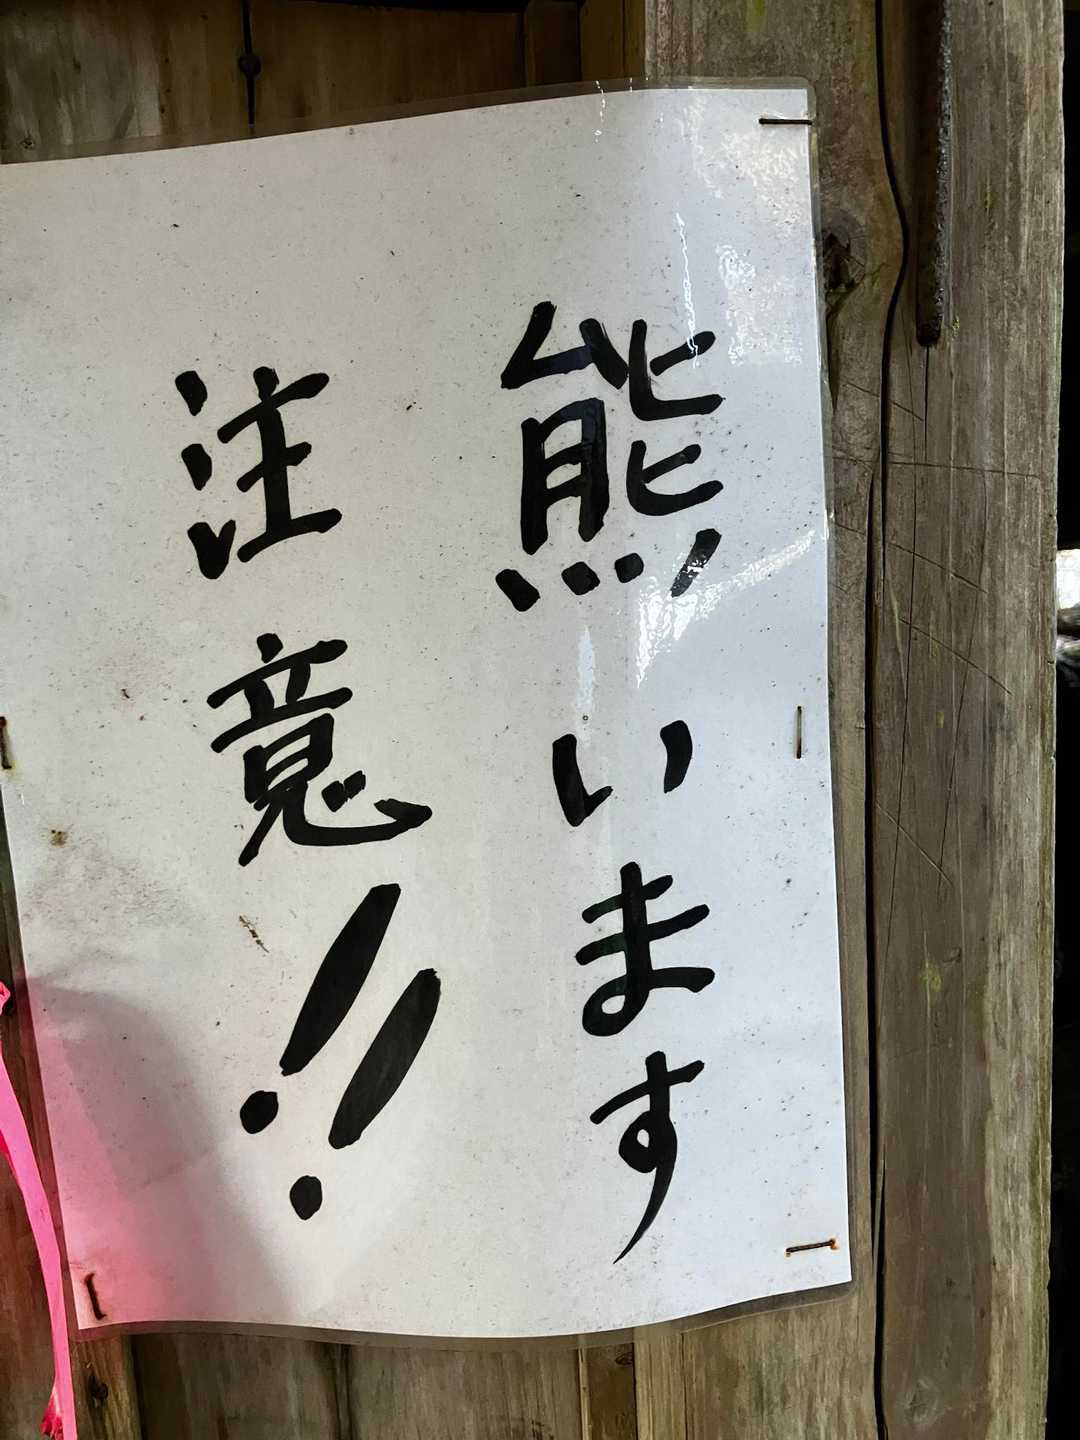 熊います
注意!!